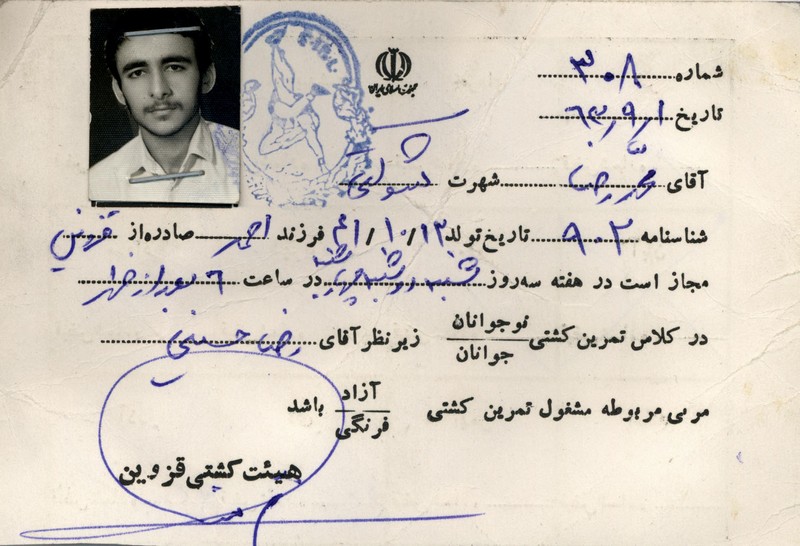 جمهوری اسلامی ایران
شماره ۳۰۸
تاریخ ۶۳/۹/۱
آقای محمدرضا شهرت شوکتی
شناسنامه ۹۰۲ تاریخ تولد ۴۱/۱۰/۱۲ فرزند احمد صادره از قزوین
مجاز است در هفته سه روز شنبه دوشنبه چهارشنبه در ساعت ۶ بعدازظهر
در کلاس تمرین کشتی نوجوانان
جوانان زیر نظر آقای رضا حسنی
مربی مربوطه مشغول تمرین کشتی آزاد
فرنگی باشد
هیئت کشتی قزوین